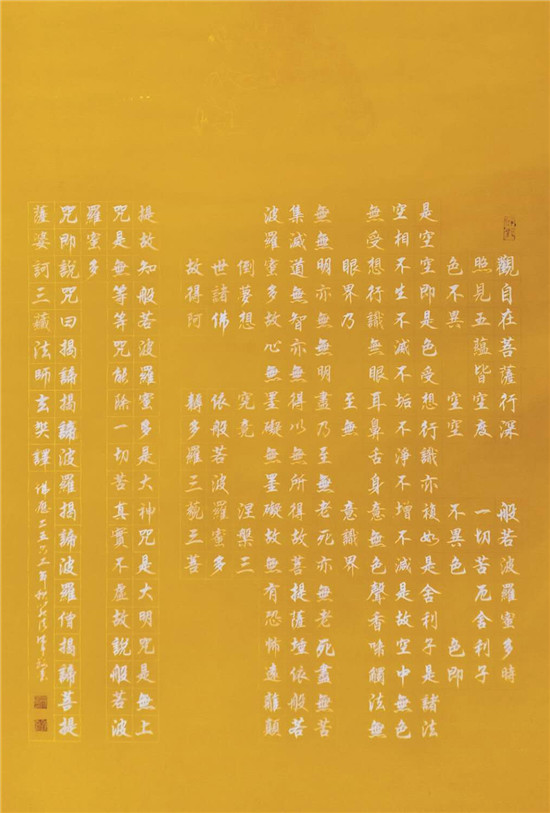 觀自在菩薩行深 般若波羅蜜多時
照見五蘊皆空度 一切苦厄舍利子
色不異 空空 不異色 色即
是空空即是色受想行識亦復如是舍利子是諸法
空相不生不滅不垢不淨不增不減是故空中無色
無受想行識無眼耳鼻舌身意無色聲香味觸法無
眼界乃 至無 意識界
無無明亦無無明盡乃至無老死亦無老死盡無苦
集滅道無智亦無得以無所得故菩提薩埵依般若
波羅蜜多故心無罣礙無罣礙故無有恐怖遠離顛
倒夢想 究竟 涅槃三
世諸佛 依般若波羅蜜多
故得阿 耨多羅三藐三菩
提故知般若波羅蜜多是大神咒是大明咒是無上
咒是無等等咒能除一切苦真實不虛故說般若波
羅蜜多
咒即說咒曰揭諦揭諦波羅揭諦波羅僧揭諦菩提
薩婆訶三藏法師玄奘譯 佛曆二五六二年秋